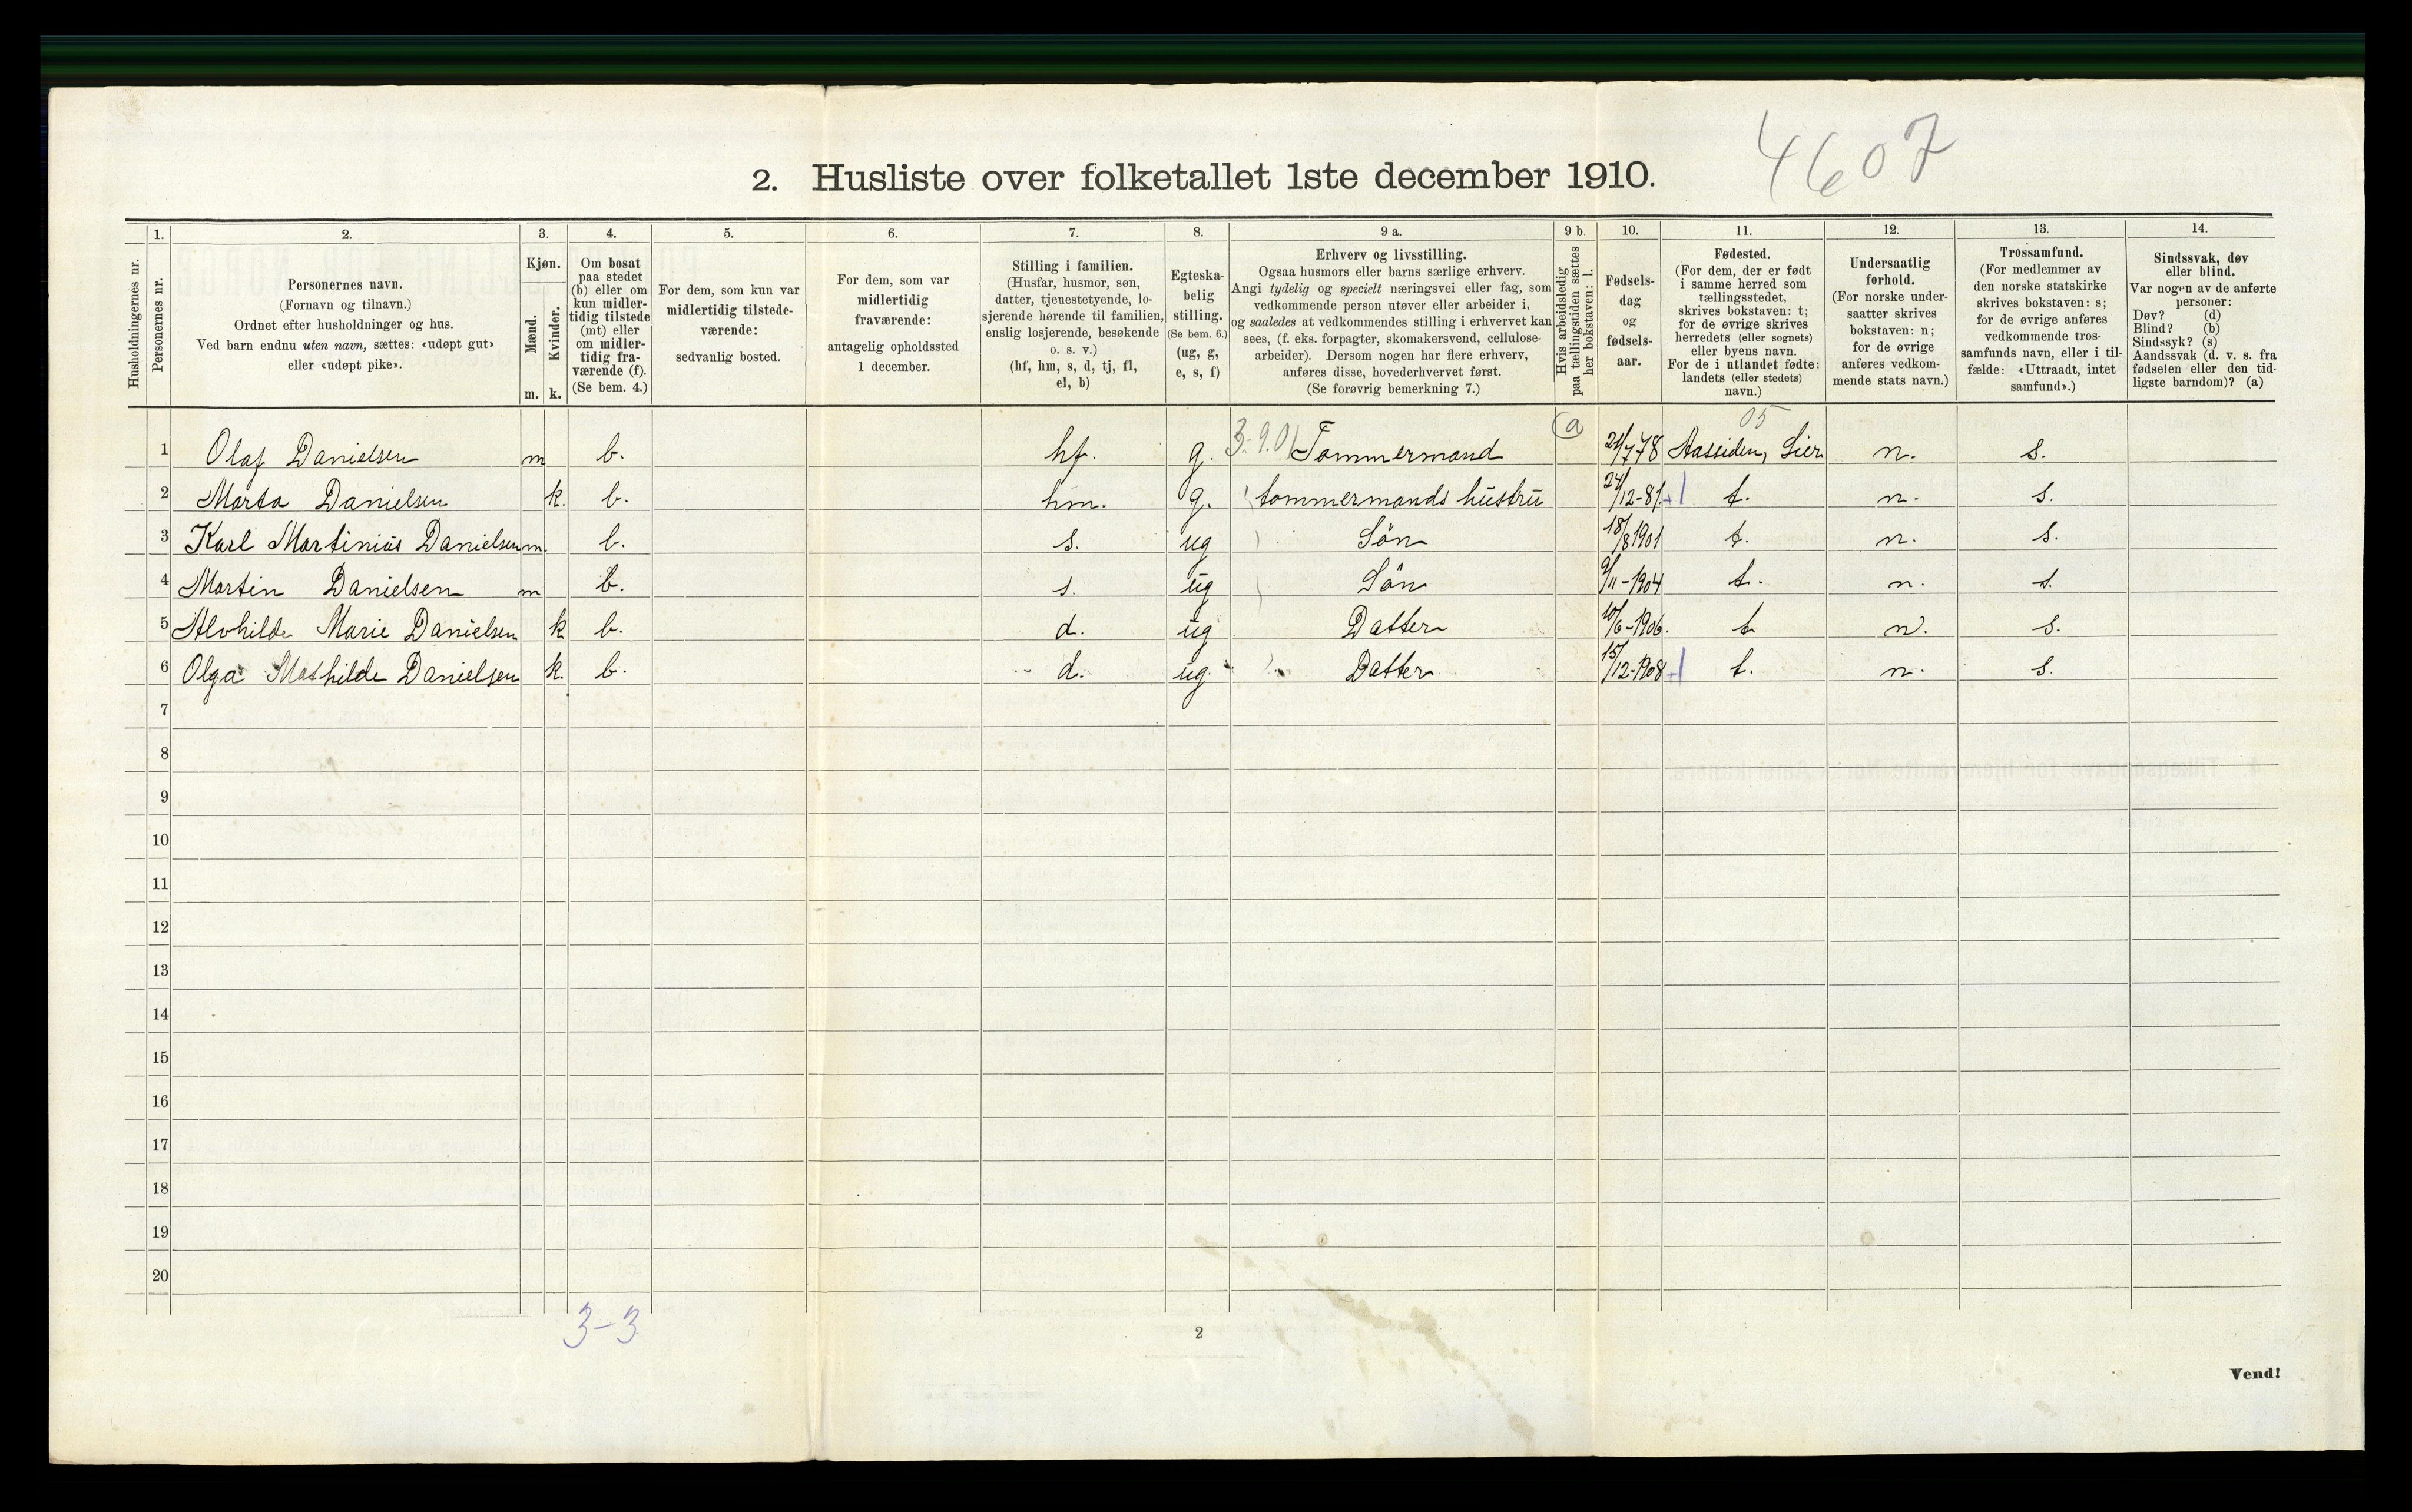 4607
2. Husliste over folketallet 1ste december 1910.
Husholdningernes nr.
1.
Personernes nr.
2.
Personernes navn.
(Fornavn og tilnavn.)
Ordnet efter husholdninger og hus.
Ved barn endnu uten navn, sættes: «udøpt gut»
eller «udøpt pike».
3.
Kjøn.
Mænd.
Kvinder.
m. k.
4.
Om bosat
paa stedet
(b) eller om
kun midler-
tidig tilstede
(mt) eller
om midler-
tidig fra-
værende (f).
(Se bem. 4.)
5.
For dem, som kun var
midlertidig tilstede-
værende:
sedvanlig bosted.
6.
For dem, som var
midlertidig
fraværende:
antagelig opholdssted
1 december.
7.
Stilling i familien.
(Husfar, husmor, søn,
datter, tjenestetyende, lo-
sjerende hørende til familien,
enslig losjerende, besøkende
o. s. v.)
(hf, hm, s, d, tj, fl,
el, b)
8.
Egteska-
belig
stilling.
(Se bem. 6.)
(ug, g,
e, s, f)
9 a.
Erhverv og livsstilling.
Ogsaa husmors eller barns særlige erhverv.
Angi tydelig og specielt næringsvei eller fag, som
vedkommende person utøver eller arbeider i,
og saaledes at vedkommendes stilling i erhvervet kan
sees, (f. eks. forpagter, skomakersvend, cellulose-
arbeider). Dersom nogen har flere erhverv,
anføres disse, hovederhvervet først.
(Se forøvrig bemerkning 7.)
9 b.
Hvis arbeidsledig
paa tællingstiden sættes
her bokstaven: l.
10.
Fødsels-
dag
og
fødsels-
aar.
11.
Fødested.
(For dem, der er født
i samme herred som
tællingsstedet,
skrives bokstaven: t;
for de øvrige skrives
herredets (eller sognets)
eller byens navn.
For de i utlandet fødte:
landets (eller stedets)
navn.)
12.
Undersaatlig
forhold.
(For norske under-
saatter skrives
bokstaven: n;
for de øvrige
anføres vedkom-
mende stats navn.)
13.
Trossamfund.
(For medlemmer av
den norske statskirke
skrives bokstaven: s;
for de øvrige anføres
vedkommende tros-
samfunds navn, eller i til-
fælde: «Uttraadt, intet
samfund».)
14.
Sindssvak, døv
eller blind.
Var nogen av de anførte
personer:
Døv? (d)
Blind? (b)
Sindssyk? (s)
Aandssvak (d. v. s. fra
fødselen eller den tid-
ligste barndom)? (a)
05
1 Olaf Danielsen m b. hf. g. 3-9.01 Tommermand a 21/7 78 Aassiden, Lier n. s.
2 Marta Danielsen k. b. hm. g. tommermands hustru 24/12-81 t. n. s.
3 Karl Martinius Danielsen m. b. s. ug Sön 18/8 1901 t. n. s.
4 Martin Danielsen m b. s. ug Sön 9/11-1904 t. n. s.
5 Alvhilde Marie Danielsen k b. d. ug Datter 10/6-1906. t n. s.
6 Olga Mathilde Danielsen k. b. d. ug. Datter 15/12-1908 t. n. s.
7
8
9
10
11
12
13
14
15
16
17
18
19
20
3-3
2
Vend!